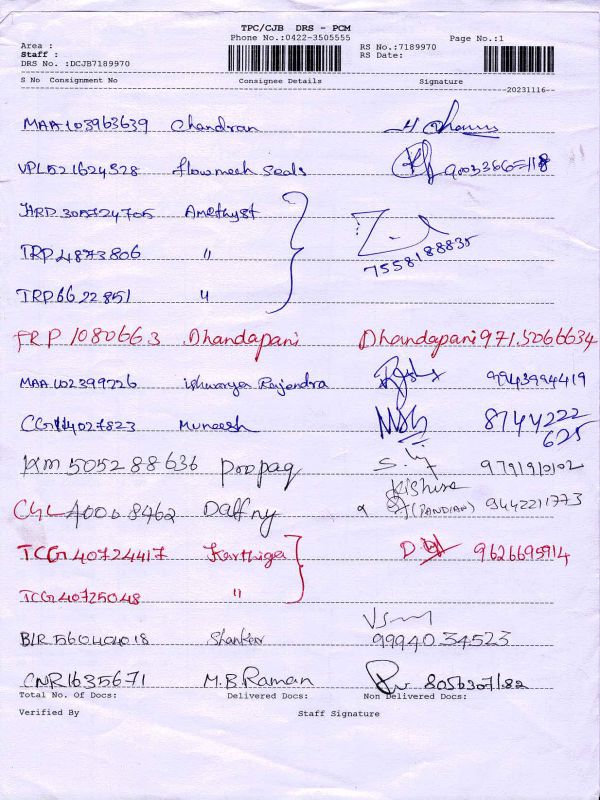 TPC/CJB DRS - PCM
Phone No.:0422-3505555
Page No.:1
Area :
RS No.:7189970
Staff :
RS Date:
DRS No. :DCJB7189970
S No Consignment No Consignee Details Signature
20231116--
MAA103963639 Chandran
VPL521624528 flowmech seals
JHRD305724705 Amethyst
7558188835
TRP4873806 "
TRP6622851 "
FRP 1080663 Dhandapani Dhandapani 9715066634
MAA102399226 ishwarya Rajendra 9943994419
CGH4027823 Muneesh 8744222
625
KM505288636 propaq 9791910102
Kishore
CGL40008462 Daffny (PANDIAN) 9442211773
TCG40724417 Karthiga 9626695914
TCG40725048 "
BLR560404018 Shanker 9994034523
CNR1635671 M.B.Raman 8056307182
Total No. Of Docs: Delivered Docs: Non Delivered Docs:
Verified By Staff Signature